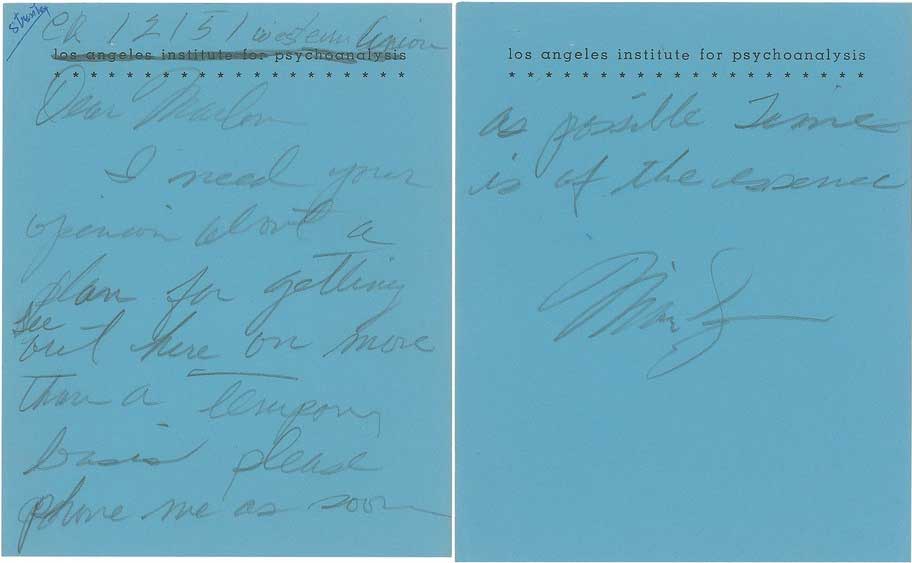 Strasberg
CR 12151 western Union
los angeles institute for psychoanalysis
Dear Marlon
I need your
opinion about a
plan for getting
Lee
out here on more
than a tempory
basis please
phone me as soon
los angeles institute for psychoanalysis
as possible Time
is of the essence